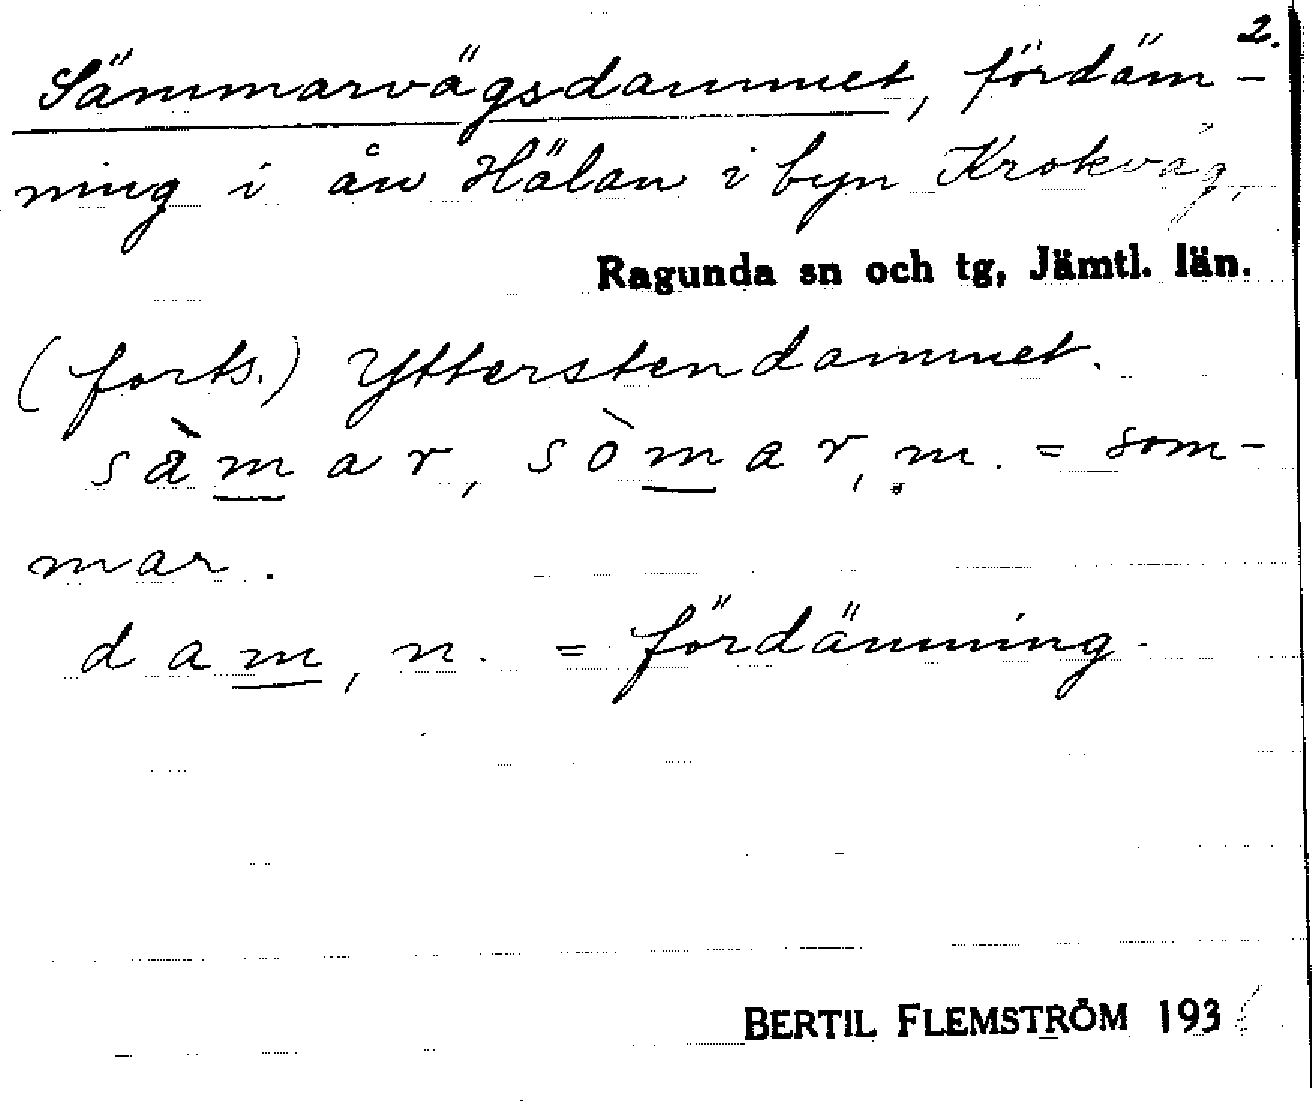 2.
Sämmarvägsdammet, fördäm-
ning i ån Hälan i byn Krokvåg,
Ragunda sn och tg, Jämtl. län.
(forts.) Yttersten dammet.
sàmar, sòmar, m. = som-
mar.
dam, n. = fördämning.
BERTIL FLEMSTRÖM 193